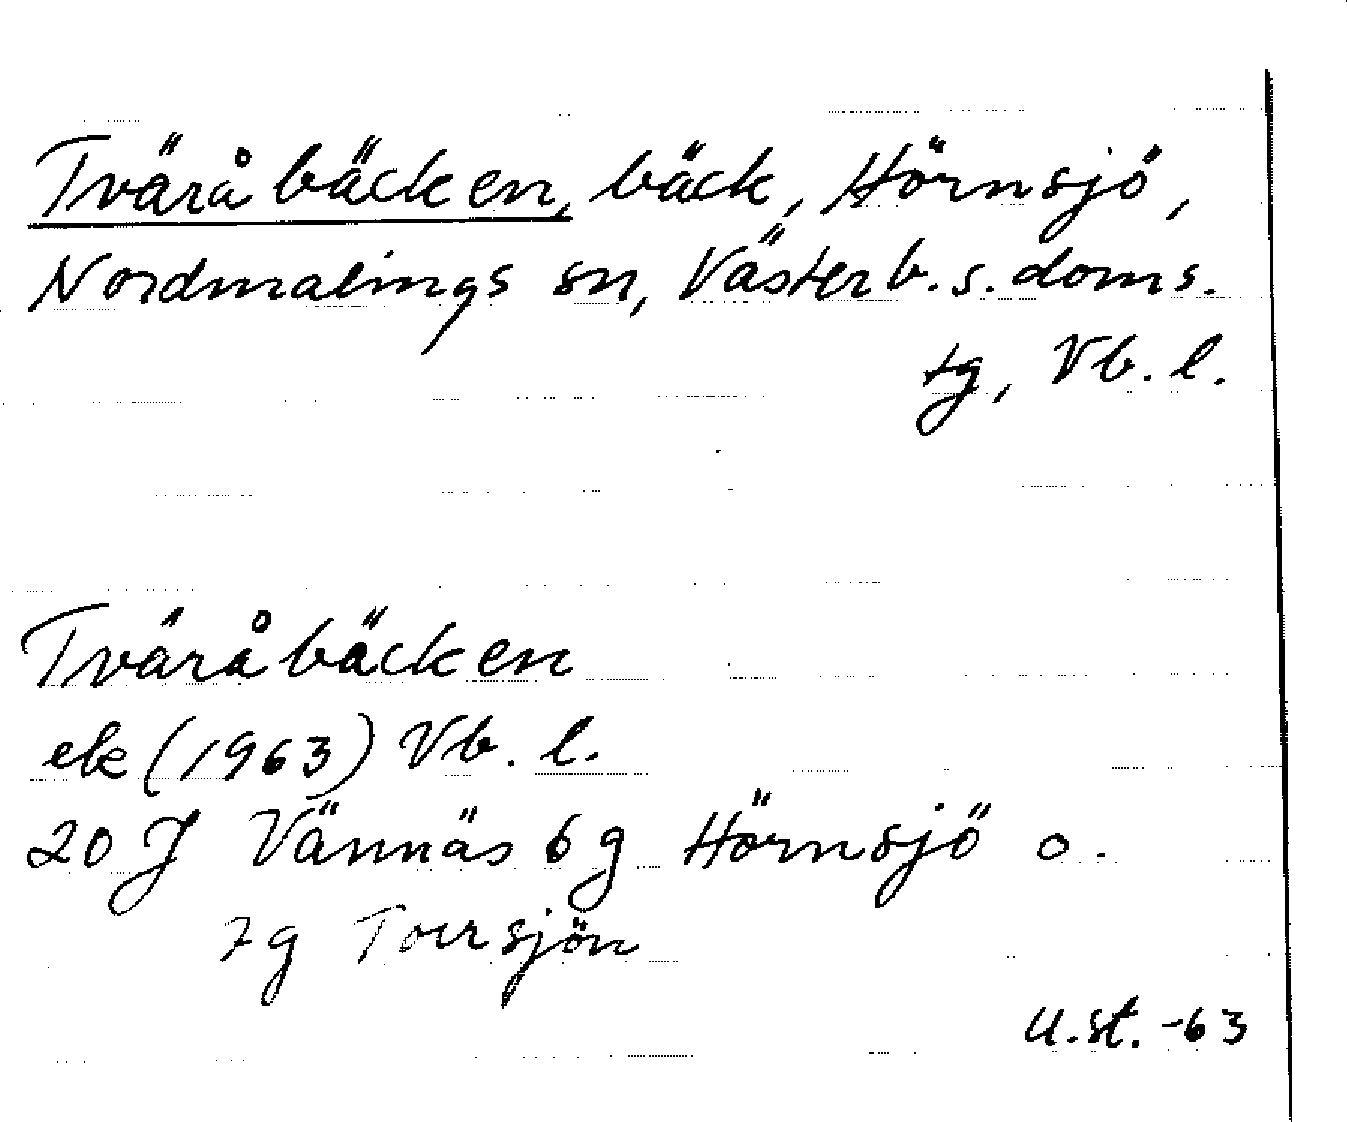 Tväråbäcken, bäck, Hörnsjö,
Nordmalings sn, Västerb. s. doms.
tg, Vb. l.
Tväråbäcken
ek (1963) Vb. l.
20 J Vännäs 6 g Hörnsjö o.
7 g Toursjön
U.st. -63